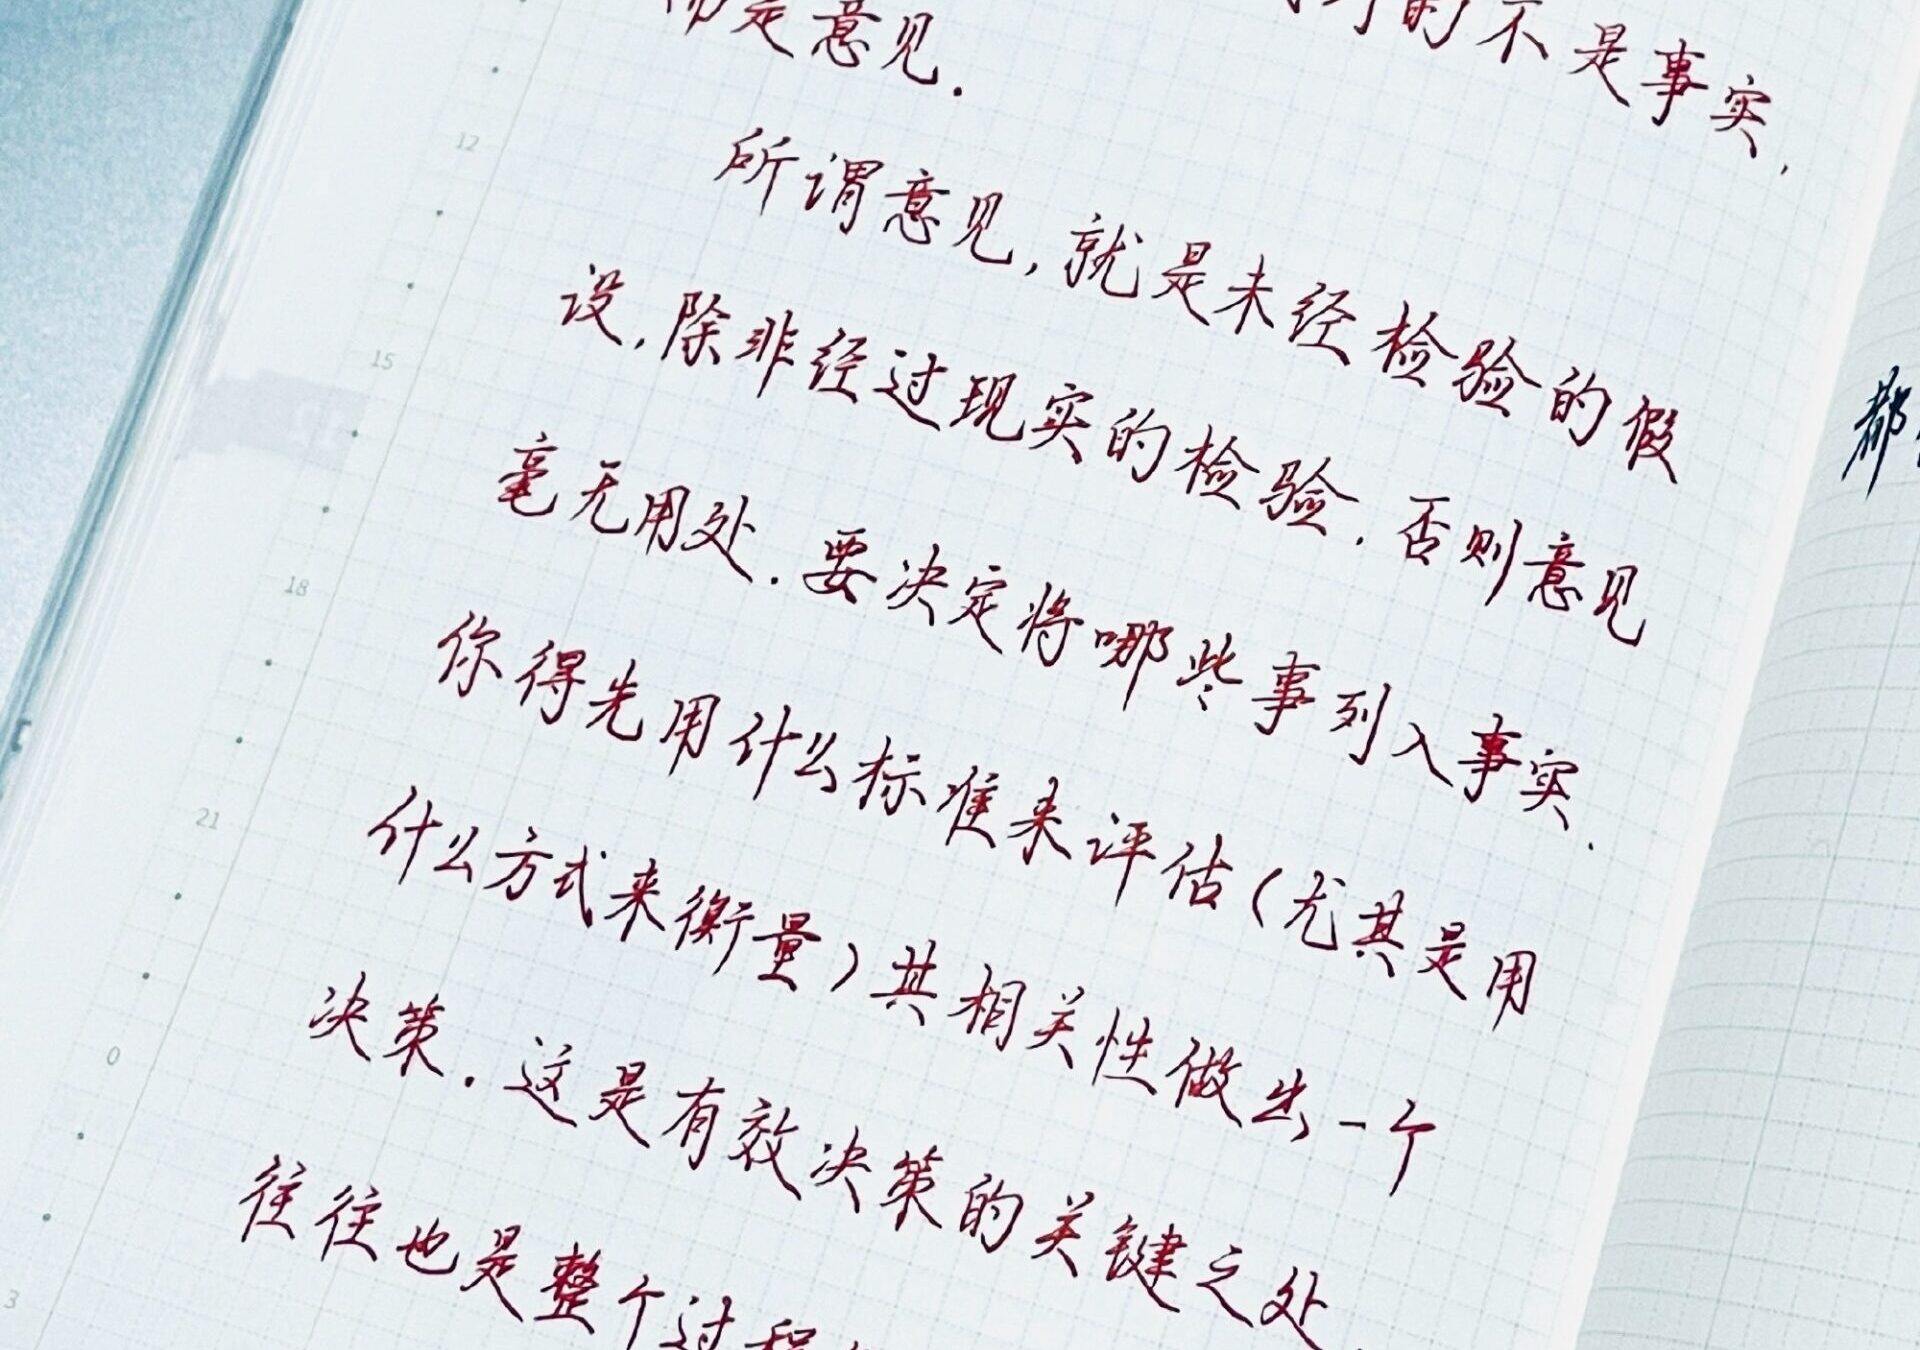 的不是事实,
而是意见.
所谓意见,就是未经检验的假
设,除非经过现实的检验.否则意见
毫无用处.要决定将哪些事列入事实.
你得先用什么标准来评估(尤其是用
什么方式来衡量)其相关性做出一个
决策.这是有效决策的关键之处.
往往也是整个过程
都
12
15
18
21
0
3